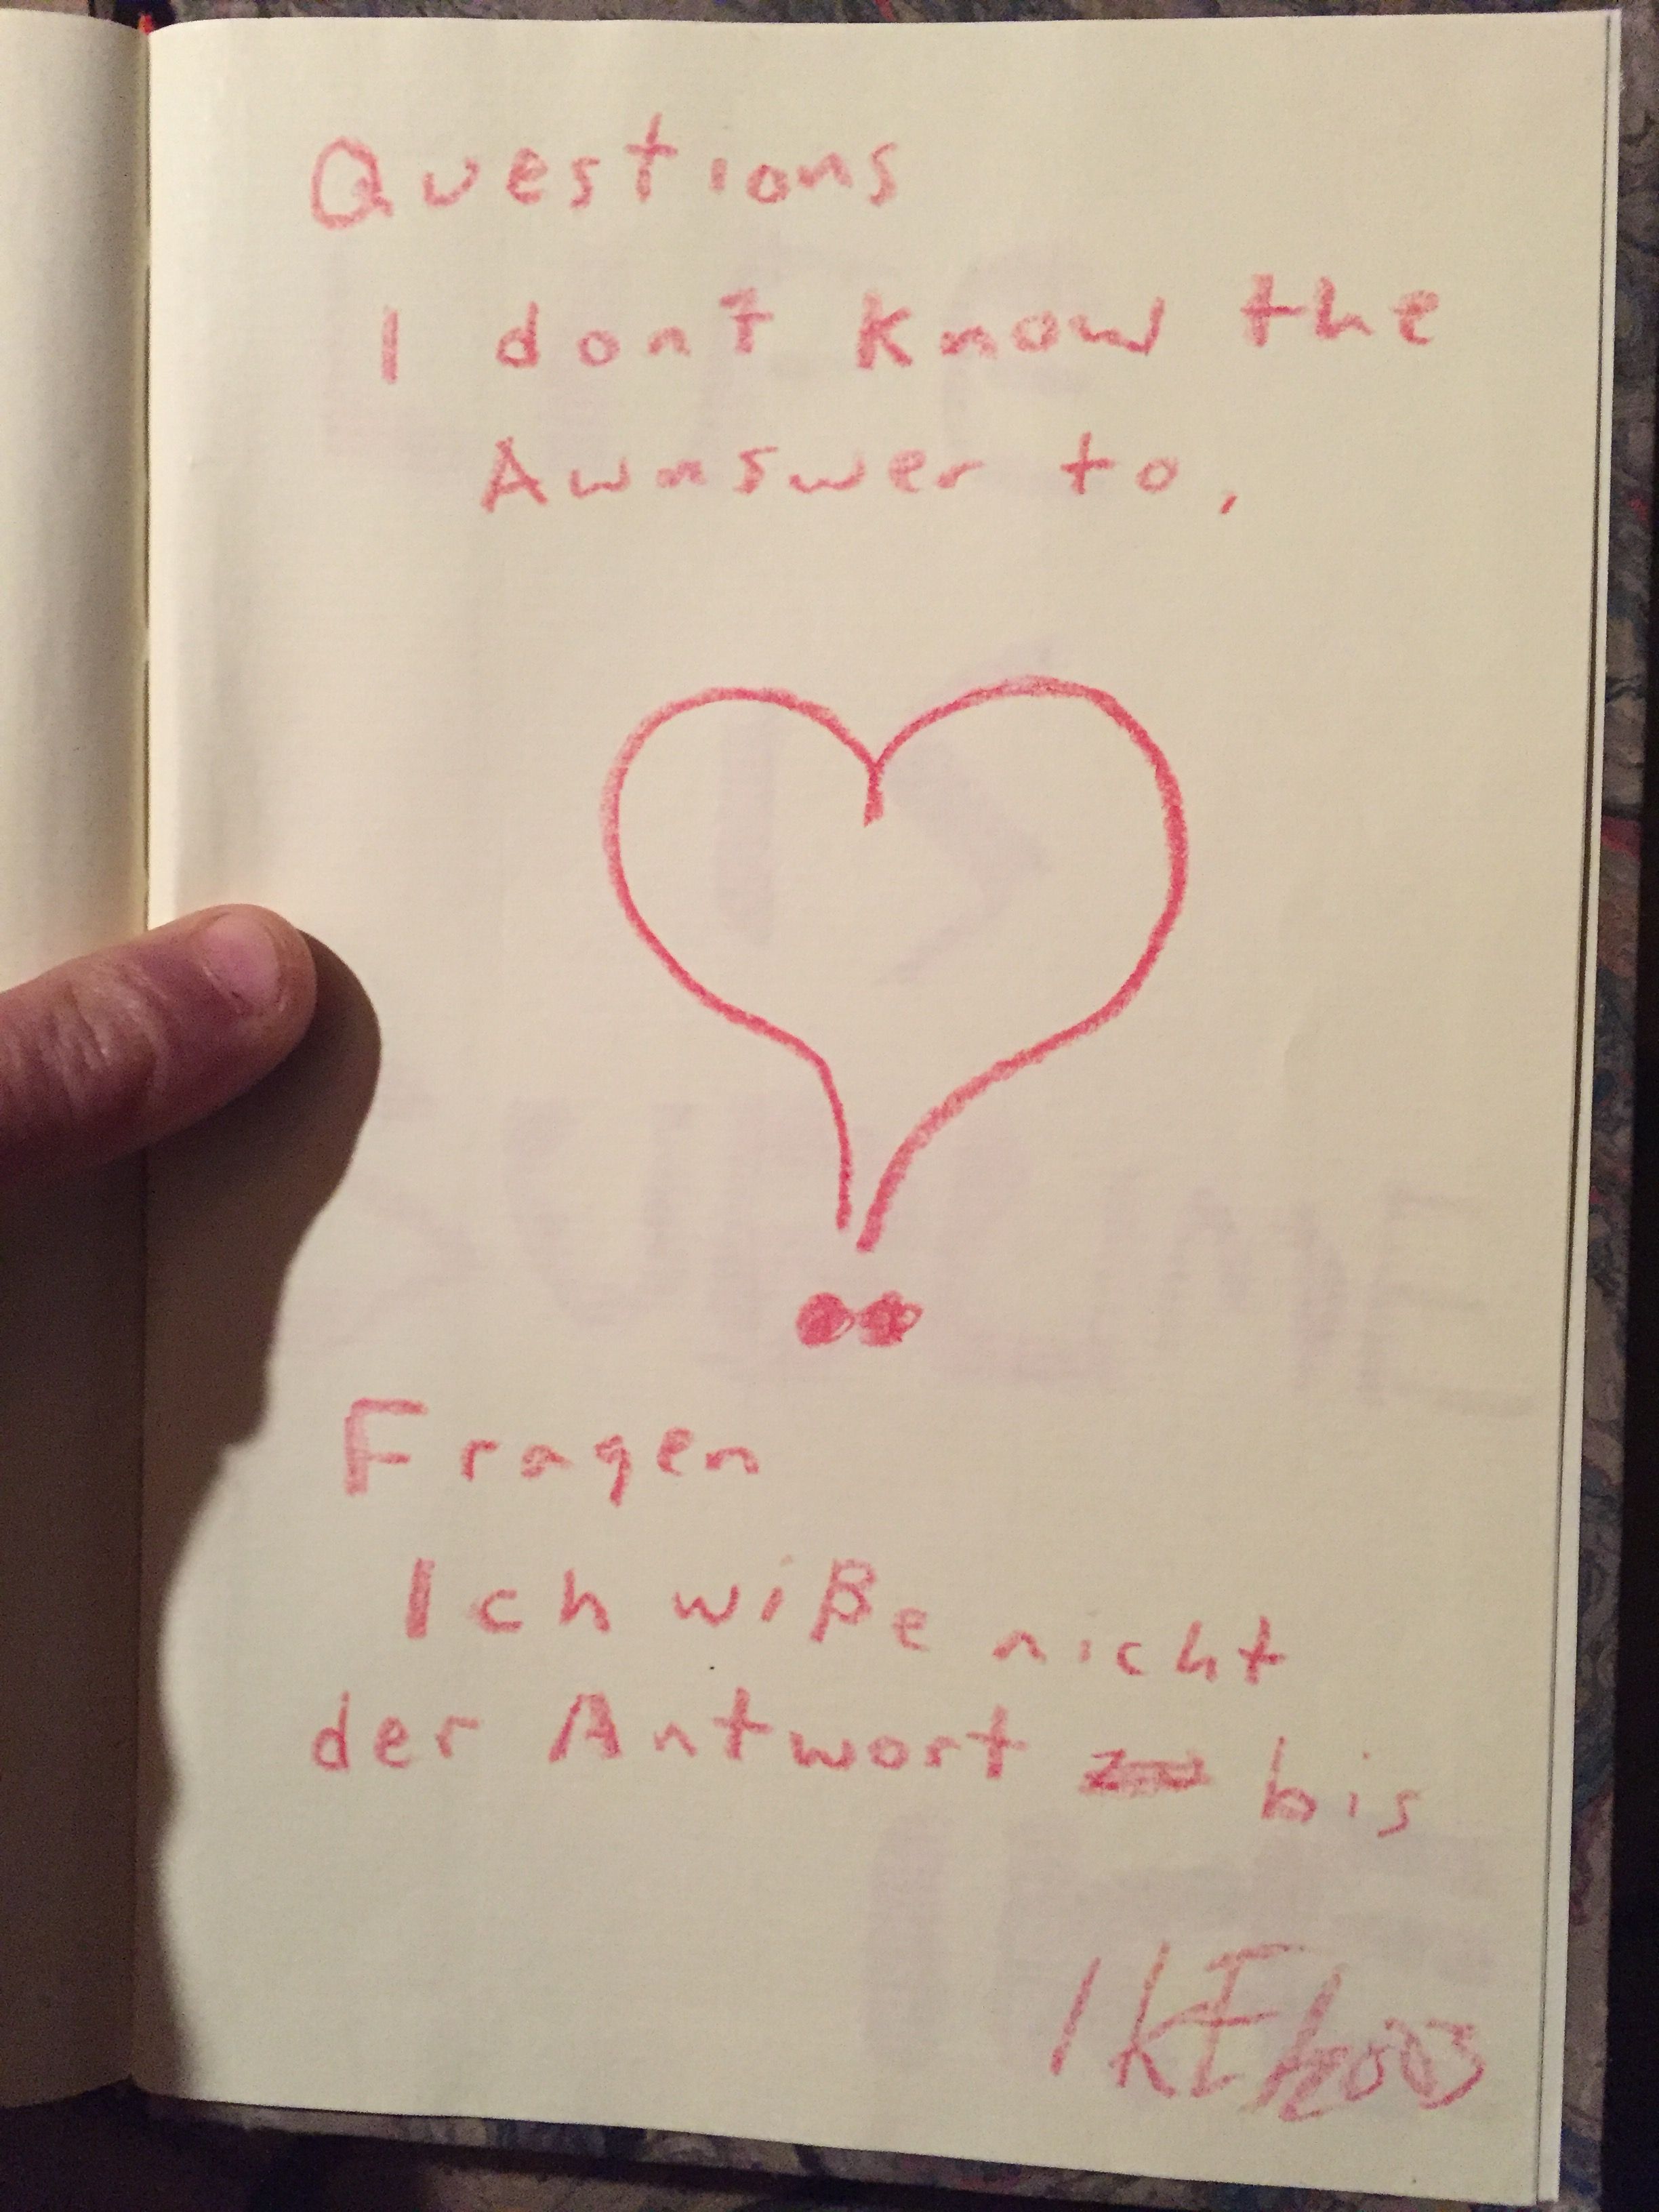 Questions
I dont know the
Awnswer to,
Fragen
Ich wiße nicht
der Antwort bis
IKE/2003